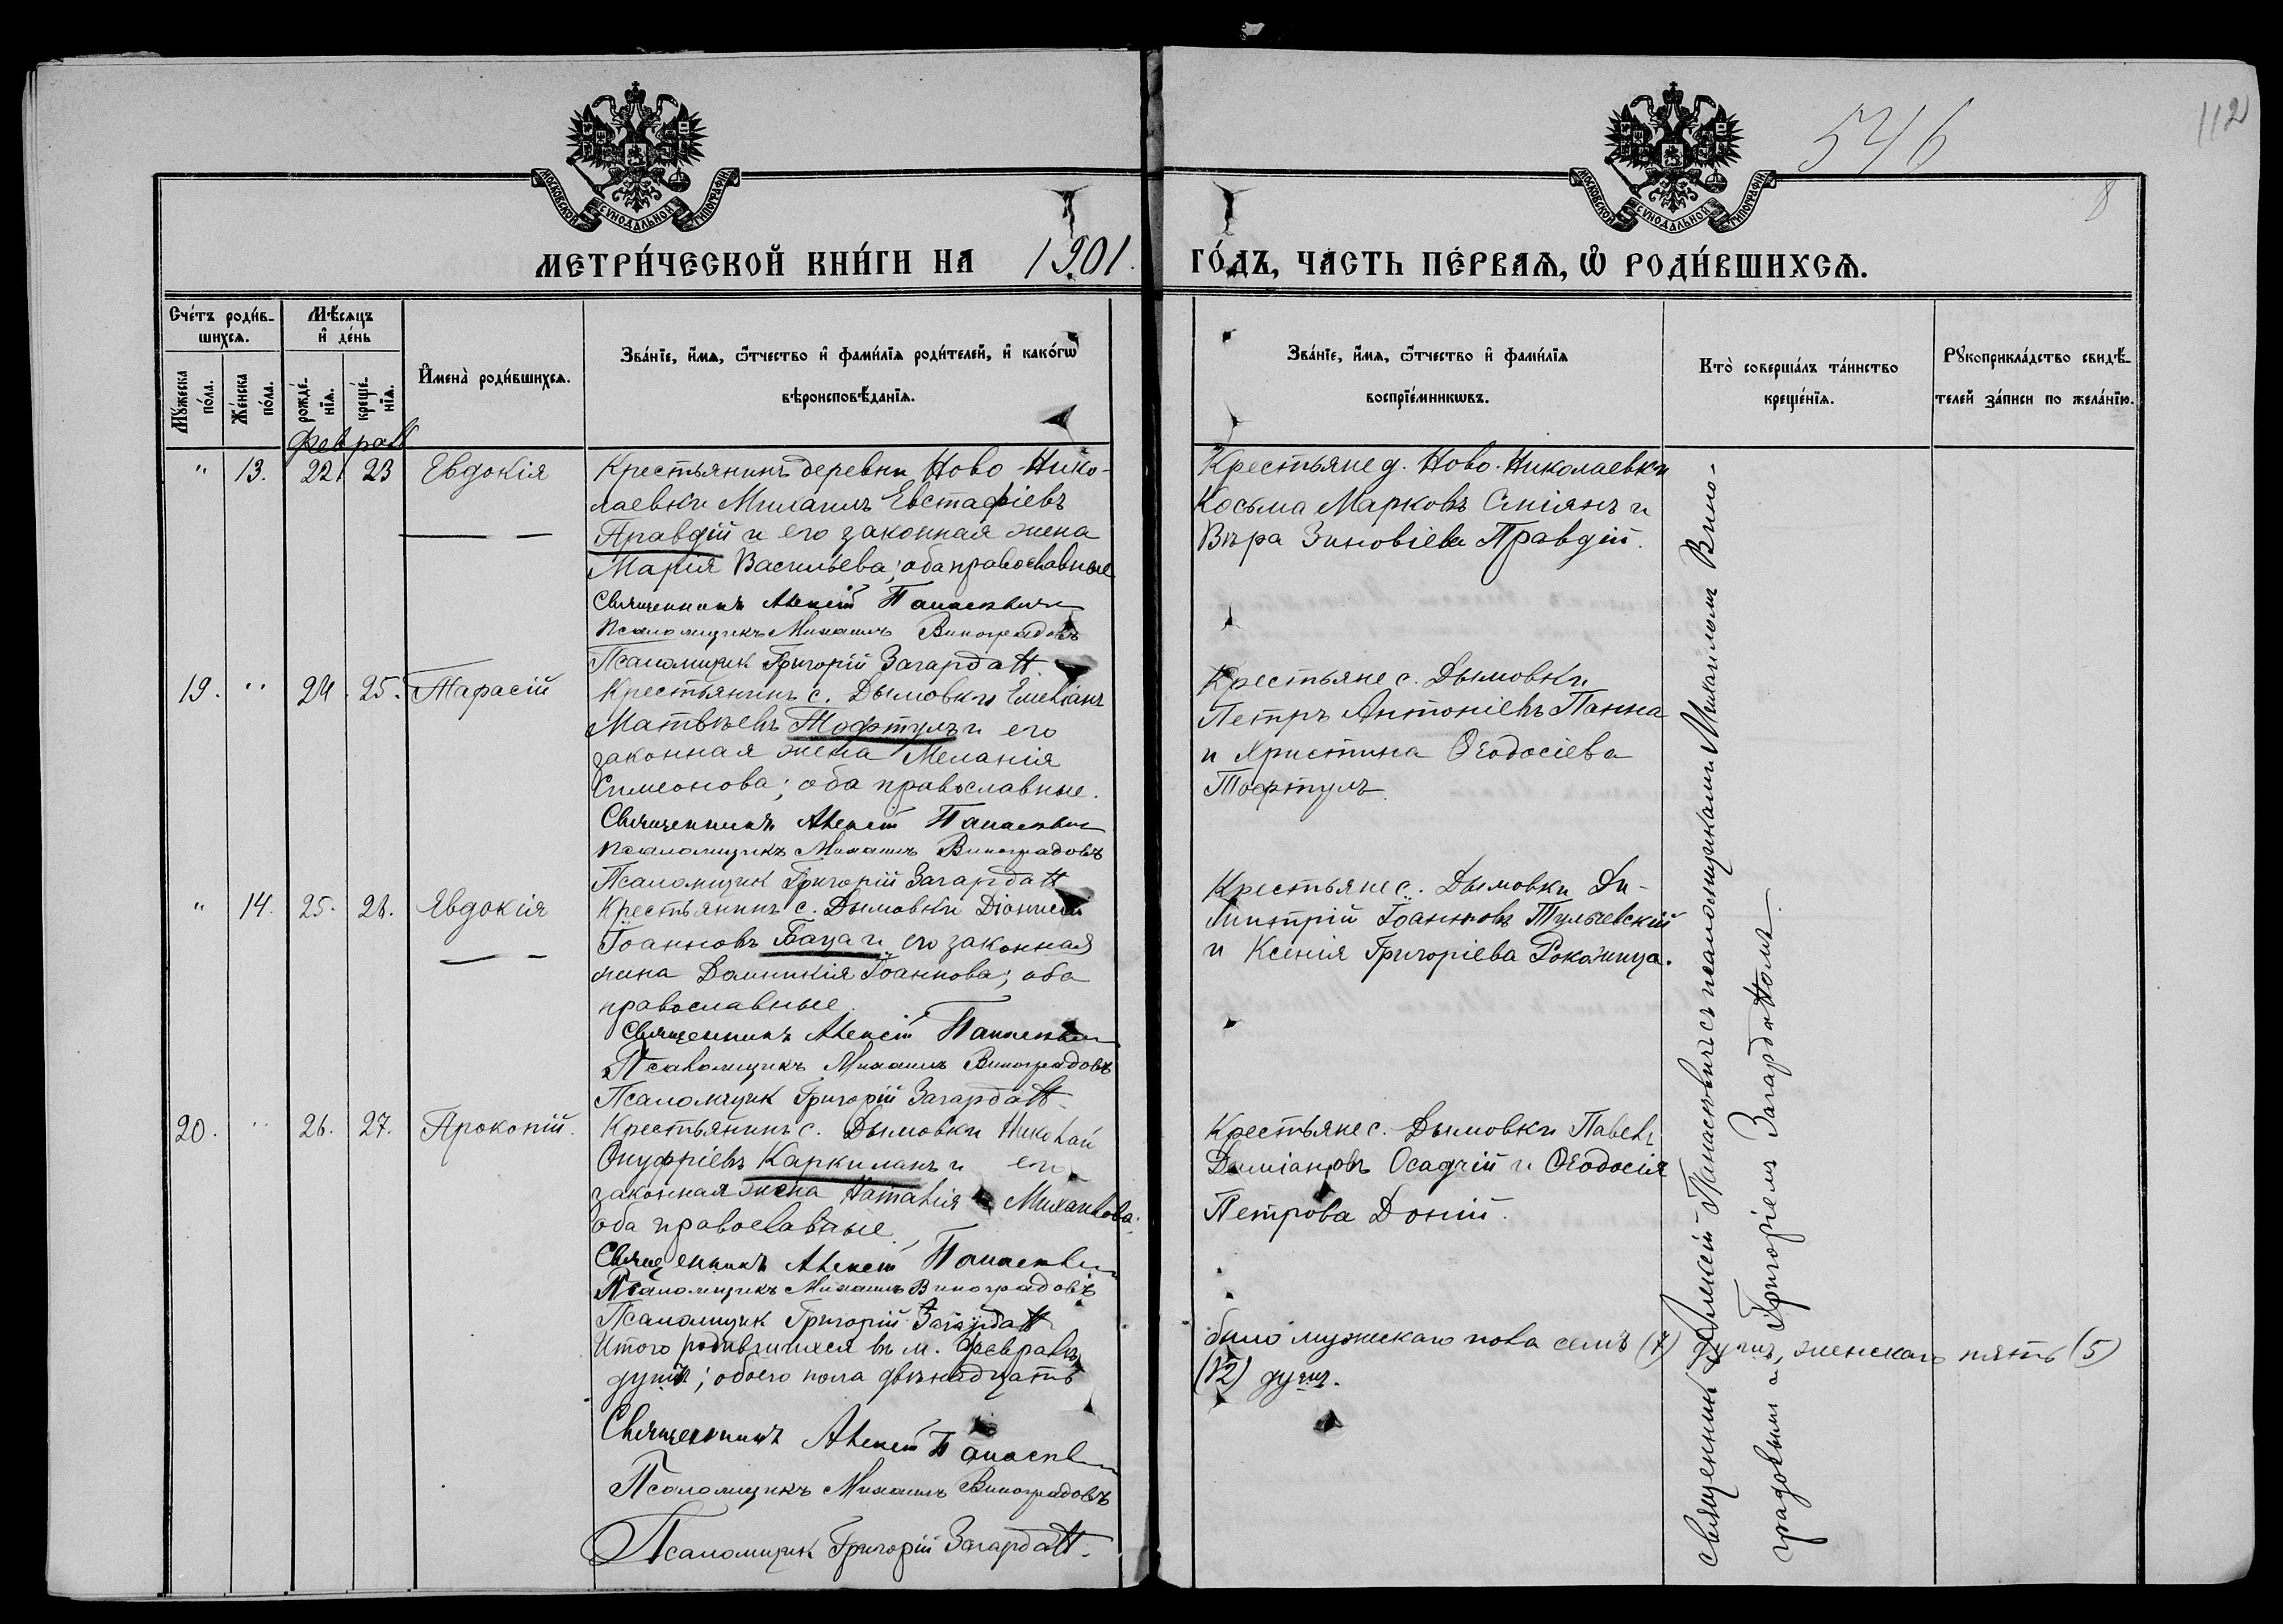 546
112
8
МОСКОВСКОЙ СѴНОДАЛЬНОЙ ТИПОГРАФІИ
МОСКОВСКОЙ СѴНОДАЛЬНОЙ ТИПОГРАФІИ
МЕТРИ́ЧЕСКОЙ КНИ́ГИ НА 1901. ГО́ДЪ, ЧАСТЬ ПЕ́РВАѦ, Ѡ҆ РОДИ́ВШИХСѦ.
Сче́тъ роди́в-
шихсѧ.
Му́жеска по́ла.
Же́нска по́ла.
Мѣ́сѧцъ
и҆ де́нь
рожде́-
нїѧ.
креще́-
нїѧ.
И҆мена̀ роди́вшихсѧ.
Зва́нїе, и҆́мѧ, ѻ҆́тчество и҆ фами́лїѧ роди́телей, и҆ како́гѡ
вѣроисповѣ́данїѧ.
Зва́нїе, и҆́мѧ, ѻ҆́тчество и҆ фами́лїѧ
воспрїе́мникѡвъ.
Кто̀ соверша́лъ та́инство
креще́нїѧ.
Рꙋкоприкла́дство свидѣ́-
телей за́писи по жела́нїю.
Февраль
" 13. 22 23 Евдокія
Крестьянинъ деревни Ново-Нико-
лаевки Михаилъ Евстафіевъ
Правдій и его законная жена
Марія Васильева; оба православные
Священникъ Алексій Панасевичъ
Псаломщикъ Михаилъ Виноградовъ
Псаломщик Григорій Загардан
Крестьяне д. Ново-Николаевки
Косьма Марковъ Сміянъ и
Вѣра Зиновіева Правдій.
19. " 24. 25. Тарасій
Крестьянинъ с. Дымовки Емеліанъ
Матвѣевъ Тофтулъ и его
законная жена Меланія
Симеонова; оба православные.
Священникъ Алексій Панасевичъ
Псаломщикъ Михаилъ Виноградовъ
Псаломщик Григорій Загардан
Крестьяне с. Дымовки
Петръ Антоніевъ Панна
и Христина Ѳеодосіева
Тофтулъ.
" 14. 25. 26. Евдокія
Крестьянинъ с. Дымовки Діонисій
Іоанновъ и его законная
жена Домникія Іоаннова; оба
православные.
Священникъ Алексій Панасевичъ
Псаломщикъ Михаилъ Виноградовъ
Псаломщик Григорій Загардан
Крестьяне с. Дымовки Ди-
митрій Іоанновъ Тульчевскій
и Ксенія Григоріева
20. " 26. 27. Прокопій.
Крестьянинъ с. Дымовки Николай
Онуфріевъ Каркиланъ и его
законная жена Наталія Михаилова
оба православные.
Священникъ Алексій Панасевичъ
Псаломщикъ Михаилъ Виноградовъ
Псаломщик Григорій Загардан
Крестьяне с. Дымовки Павелъ
Даміановъ Осадчій и Ѳеодосія
Петрова Доній.
Итого родившихся въ м. Февралѣ было мужскаго пола семь (7) душъ, женскаго пять (5)
душъ; обоего пола двѣнадцать (12) душъ.
Священникъ Алексій Панасевичъ
Псаломщикъ Михаилъ Виноградовъ
Псаломщик Григорій Загардан.
Священник Алексій Панасевичъ съ псаломщиками Михаиломъ Вино-
градовымъ и Григоріемъ Загарданомъ